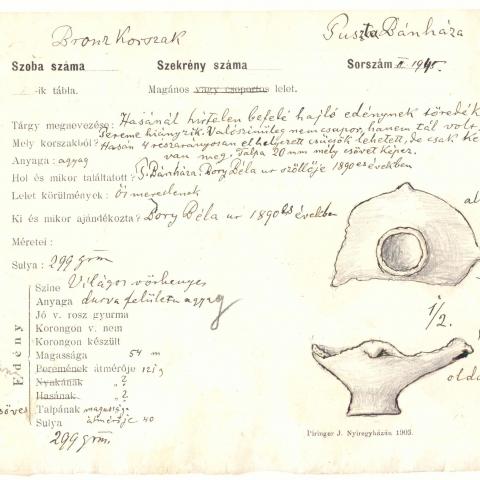 Bronz Korszak
Puszta Bánháza
Szoba száma
Szekrény száma
Sorszám II 1945.
-ik tábla.
Magános vagy csoportos lelet.
Tárgy megnevezése: Hasánál hirtelen befelé hajló edénynek töredék
Pereme hiányzik. Valószinüleg nem csupor, hanem tál volt.
Mely korszakból? Hasán 4 részarányosan elhelyezett csücsök lehetett, de csak ké
van meg. Talpa 20 mm mély csövet képez.
Anyaga: agyag
Hol és mikor találtatott? P. Bánháza. Bory Béla ur szőllője 1890es években
Lelet körülmények: Ös meredenek
Ki és mikor ajándékozta? Bory Béla ur 1890es években
Méretei:
Sulya: 299 grm
Edény
Szine Világos vörhenyes
Anyaga durva felületü agyag
Jó v. rosz gyurma
Korongon v. nem
Korongon készült
Magassága 54 m
Peremének átmérője 121
Nyakának „ ?
Hasának „ ?
Talpának magassága
Sulya átmérője 40
299 grm.
söves
al
1/2.
olda
Piringer J. Nyiregyházán 1905.